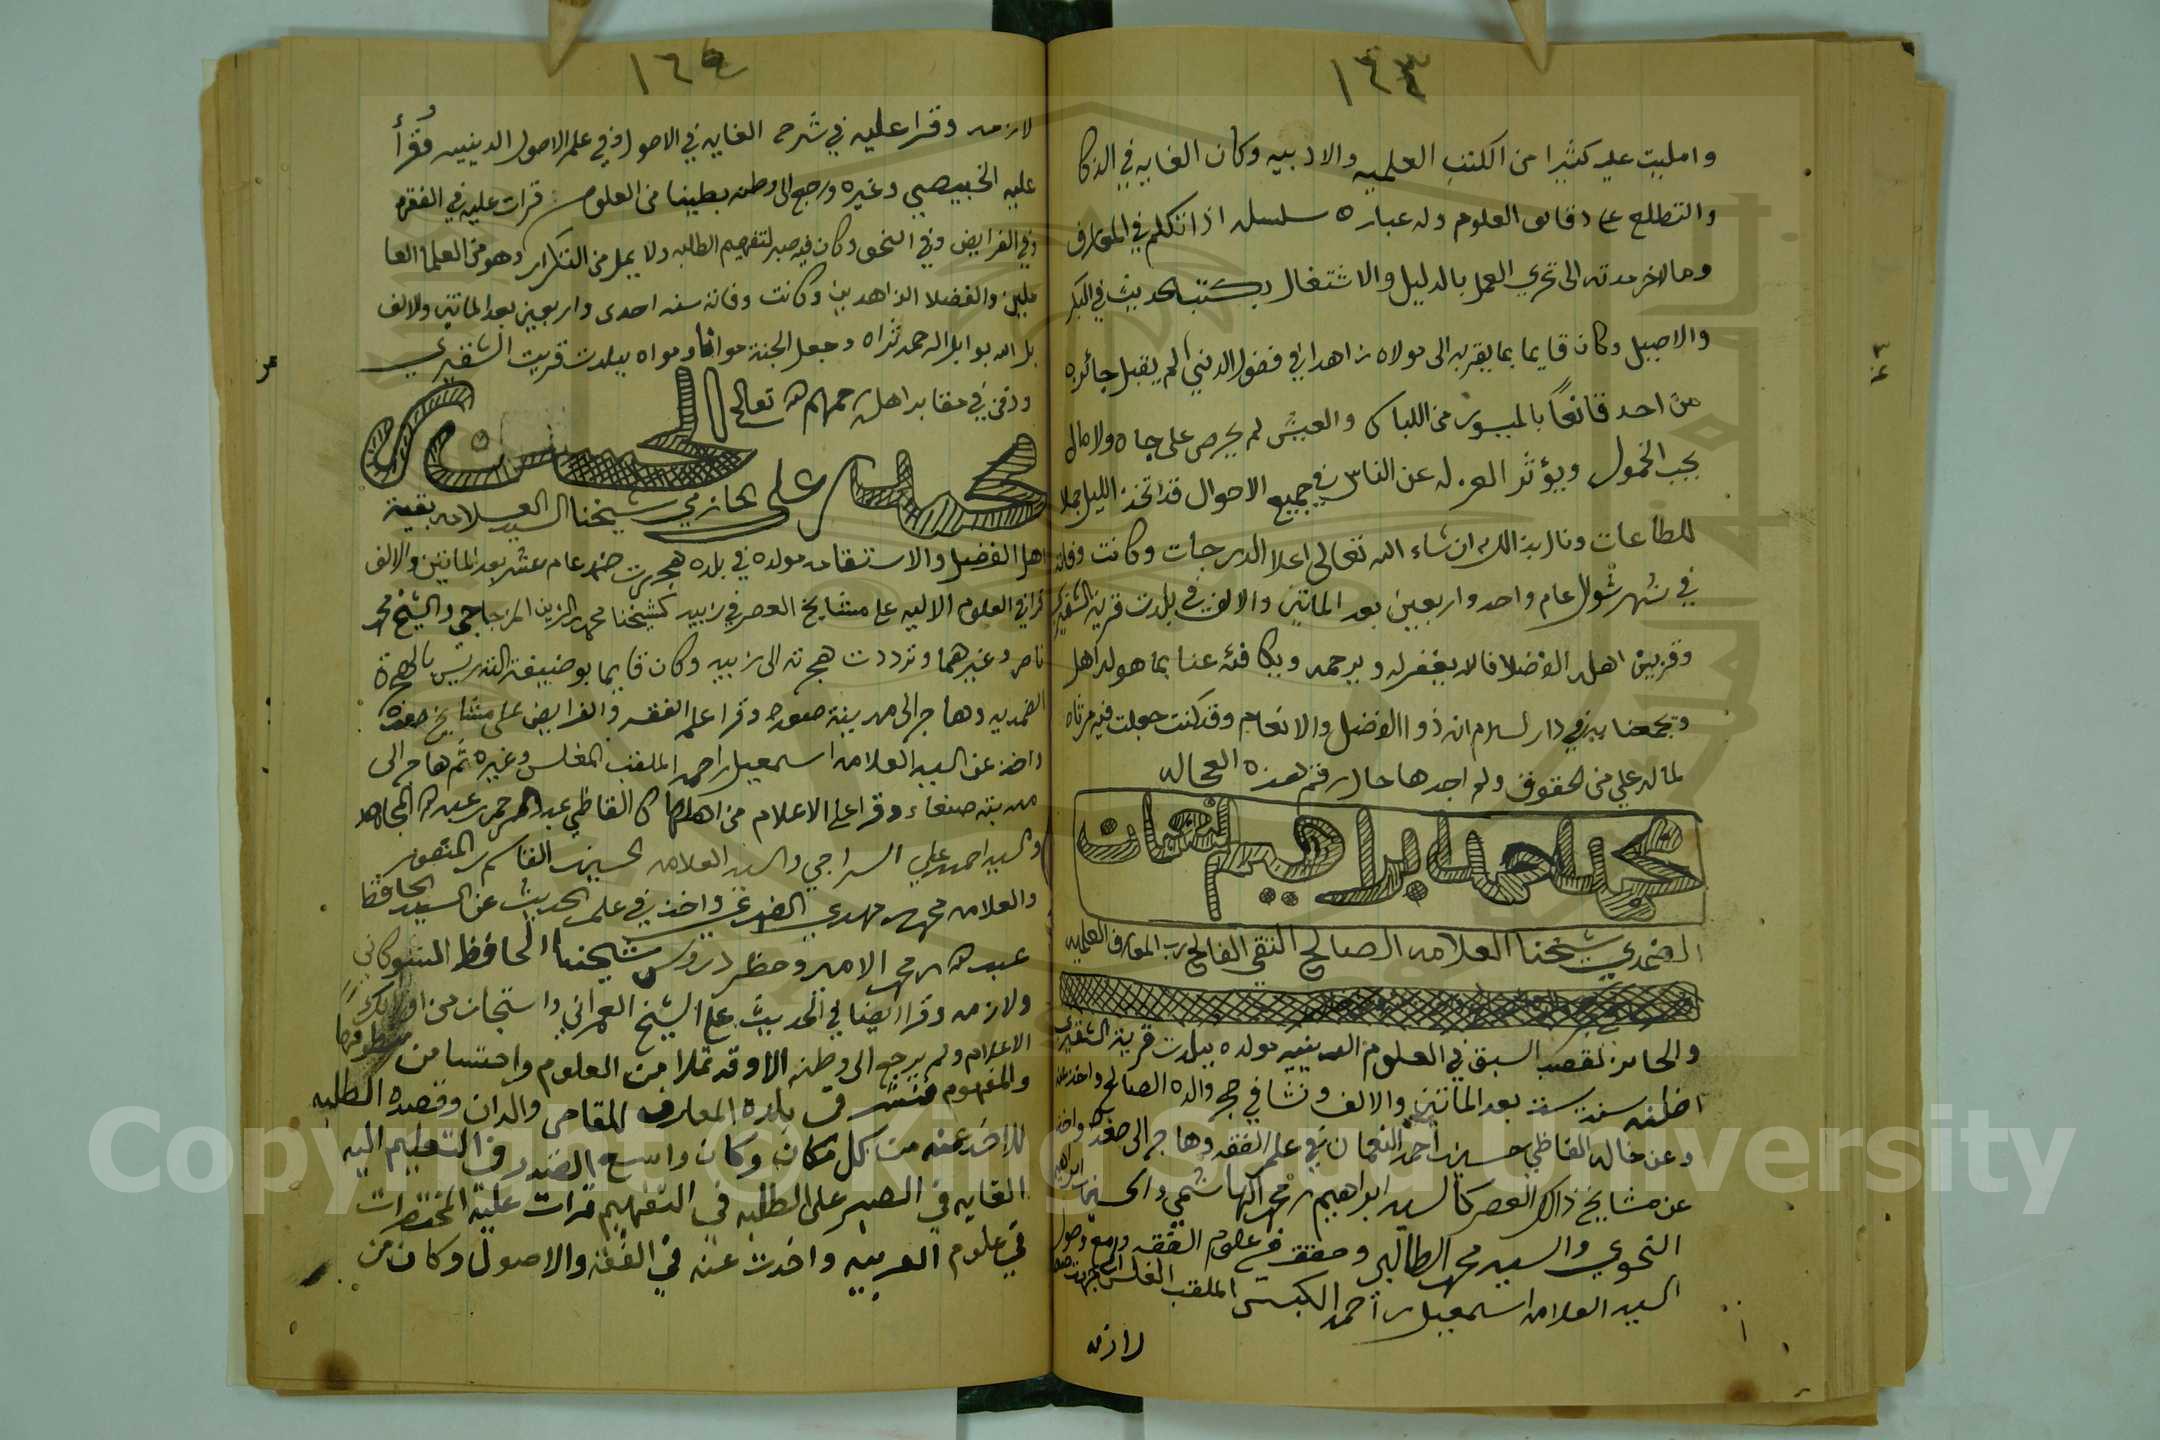 ١٦٣
وامليت عليه كثيرا من الكتب العلميه والادبيه وكان الغايه في الذكا
والتطلع على دقائق العلوم وله عباره سلسله اذا تكلم في المعارف
ومال اخر مدته الى تحري العمل بالدليل والاشتغال بكتب الحديث في البكر
والاصيل وكان قايما بما يقربه الى مولاه زاهدا في فضول الدنيا لم يقبل جائزه
من احد قانعًا بالميسور من اللباس والعيش لم يحرص على جاه ولا مال
يحب الخمول ويؤثر العزله عن الناس في جميع الاحوال قد اتخذ الليل جملا
للطاعات ونال بذالك ان شاء الله تعالى اعلا الدرجات وكانت وفاته
في شهر شوال عام واحد واربعين بعد الماتين والالف في بلدت قرية الشقيري
وقبر بين اهله الافضلا فالله يغفر له ويرحمه ويكافئه عنا بما هو له اهل
ويجمعنا به في دار السلام انه ذو الفضل والانعام وقد كنت جعلت فيه مرثاه
لما له علي من الحقوق ولم اجدها حال رقم هذه العجاله
محمد بن احمد بن ابراهيم النعمان
الضمدي شيخنا العلامه الصالح التقي الفالح رب المعارف العلميه
والحائز لقصب السبق في العلوم الدينيه مولده ببلدت قرية الشقيري
اظنه سنة ست بعد الماتين والالف ونشا في حجر والده الصالح واخذ عنه
وعن خاله القاظي حسين بن أحمد النعمان في علم الفقه وهاجر الى صعده واخذ
عن مشايخ ذالك العصر كالسيد ابراهيم بن محمد الهاشمي والحسين بن ابراهيم
النحوي والسيد محمد الطالبي وحقق في علوم الفقه
السيد العلامه اسمعيل بن أحمد الكبسي الملقب المغلس
لازمه
١٦٤
لازمه وقرا عليه في شرح الغايه في الاصول وفي علم الاصول الدينيه وقرأ
عليه الخبيصي وغيره ورجع الى وطنه بطينا من العلوم قرات عليه في الفقه
وفي الفرايض وفي النحو وكان فيه صبر لتفهيم الطلبه ولا يمل من التكرار وهو من العلما العا
ملين والفضلا الزاهدين وكانت وفاته سنه احدى واربعين بعد الماتين والالف
بل الله بوابل الرحمه ثراه وجعل الجنة مواه ببلدت قريت الشقيري
ودفن في مقابر اهله رحمهم الله تعالى
الحسن بن
محمد بن علي الحازمي شيخنا السيد العلامه بقية
اهل الفضل والاستقامه مولده في بلده هجرت ضمد عام عشر بعد الماتين والالف
قرا في العلوم الاليه على مشايخ العصر في زبيد كشيخنا محمد بن الزين المزجاجي والشيخ محمد
ناصر وغيرهما وترددت هجرته الى زبيد وكان قايما بوضيفة التدريس بالهجرة
الضمديه وهاجر الى مدينة صعده وقرا علم الفقه والفرايض على مشايخ صعده
واخذ عن السيد العلامه اسمعيل بن احمد الملقب المغلس وغيره ثم هاجر الى
مدينة صنعاء وقرا على الاعلام من اهلها كالقاظي عبد الرحمن بن عبد الله المجاهد
والسيد احمد بن علي السراجي والسيد العلامه الحسين بن القاسم بن المنصور
والعلامه محمد بن مهدي الضمدي واخذ في علم الحديث عن السيد الحافظ
عبد الله بن محمد الامير وحظر دروس شيخنا الحافظ الشوكاني
ولازمه وقرا ايضا في الحديث على الشيخ العمراني واستجاز من اولائك
الاعلام ولم يرجع الى وطنه الا وقد تملا من العلوم واحتسا من منطوقها
والمفهوم فنشر في بلده المعارف للقاصي والدان وقصده الطلبه
للاخذ عنه من كل مكان وكان واسع الصدر في التعليم اليه
الغايه في الصبر على الطلبه في التفهيم قرات عليه المختصرات
في علوم العربيه واخذت عنه في الفقه والاصول وكان من
Copyright © King Saud University